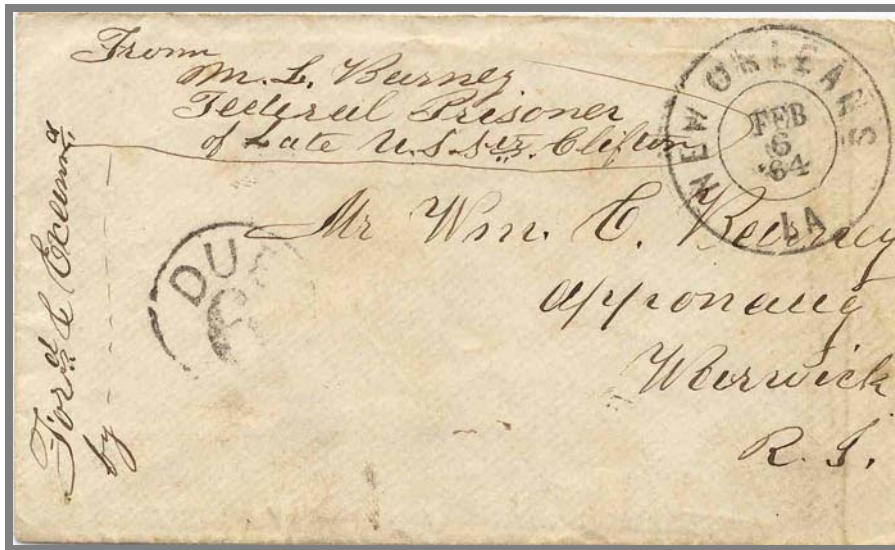 From
M. L. Burney
Federal Prisoner
of Late U.S. Str. Clifton
NEW ORLEANS
FEB
6
64
LA
Mr Wm. C. Kearney
apponaug
Warwick
R. I.
DUE
by